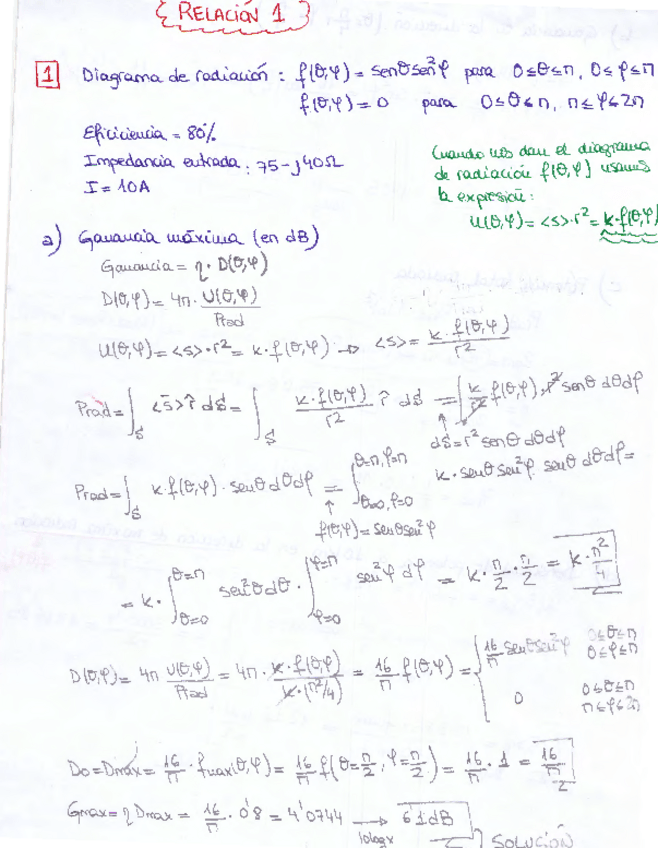 { RELACIÓN 1 }
1 Diagrama de radiación : f(θ,φ) = senθsen²φ para 0≤θ≤π, 0≤φ≤π
f(θ,φ) = 0 para 0≤θ≤π, π≤φ≤2π
Eficiciencia = 80%
Impedancia entrada : 75-j40Ω
I = 10A
Cuando nos dan el diagrama
de radiación f(θ,φ) usamos
la expresión:
U(θ,φ) = <s>·r² = k·f(θ,φ)
a) Ganancia máxima (en dB)
Ganancia = η · D(θ,φ)
D(θ,φ) = 4π · U(θ,φ)/Prad
U(θ,φ) = <s>·r² = k·f(θ,φ) → <s> = k·f(θ,φ)/r²
Prad = ∫s <s̄> r̂ ds̄ = ∫s k·f(θ,φ)/r² r̂ ds̄ = ∫ k/r² f(θ,φ)·r² senθ dθdφ
ds̄ = r² senθ dθdφ
Prad = ∫s k·f(θ,φ)·senθ dθdφ = ∫θ=0,φ=0 θ=π,φ=π k·senθsen²φ senθ dθdφ =
f(θ,φ) = senθsen²φ
= k · ∫θ=0 θ=π sen²θdθ · ∫φ=0 φ=π sen²φ dφ = k · π/2 · π/2 = k·π²/4
D(θ,φ) = 4π U(θ,φ)/Prad = 4π · k·f(θ,φ)/k·(π²/4) = 16/π f(θ,φ) = { 16/π senθsen²φ 0≤θ≤π 0≤φ≤π
0 0≤θ≤π π≤φ≤2π
Do = Dmax = 16/π · fmax(θ,φ) = 16/π f(θ=π/2, φ=π/2) = 16/π · 1 = 16/π
Gmax = η Dmax = 16/π · 0'8 = 4'0744 → 6'1dB
10logx
SOLUCIÓN